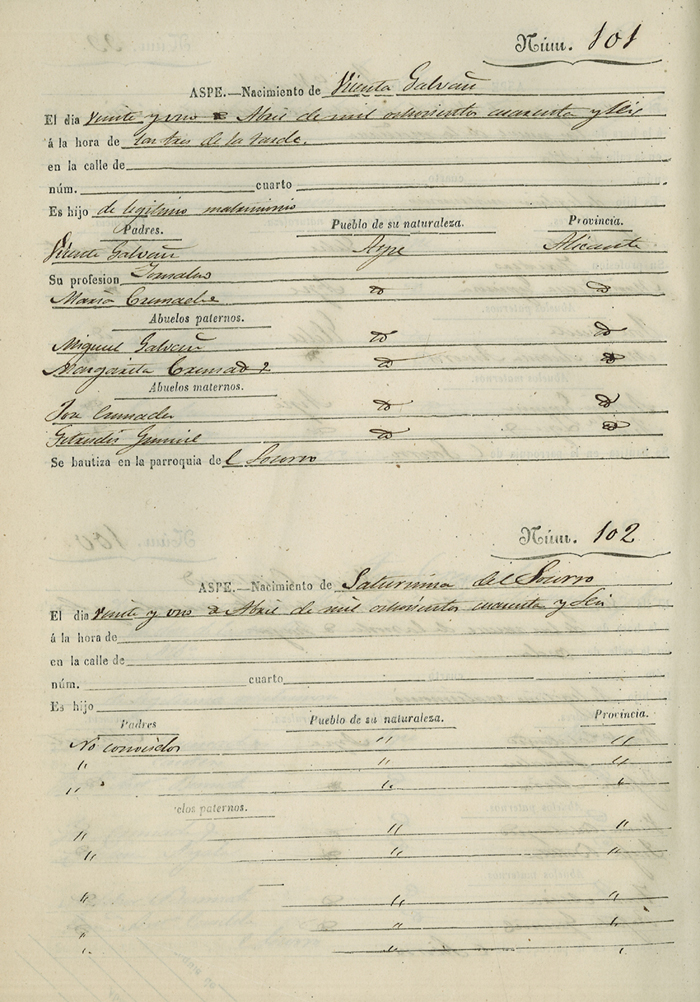 Núm. 101
ASPE.—Nacimiento de Vicenta Galvañ
El dia Veinte y uno de Abril de mil ochocientos cuarenta y Seis
á la hora de las tres de la tarde.
en la calle de
núm. cuarto
Es hijo de legitimo matrimonio
Padres. Pueblo de su naturaleza. Provincia.
Vicente Galvañ Aspe Alicante
Su profesion Jornalero
Maria Cremades id id
Abuelos paternos.
Miguel Galvañ id id
Margarita Cremades id id
Abuelos maternos.
Cremades id id
id id
Se bautiza en la parroquia del Socorro
Núm. 102
ASPE.—Nacimiento de Saturnina del Socorro
El dia Veinte y uno de Abril de mil ochocientos cuarenta y Seis
á la hora de
en la calle de
núm. cuarto
Es hijo
Padres Pueblo de su naturaleza. Provincia.
No conocidos " "
" " "
" " "
elos paternos.
" " "
" " "
" " "
" " "
" " "